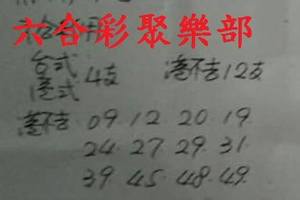 六合彩聚樂部
台式 4支
港式
港不出12支
港不出 09. 12. 20. 19.
24. 27. 29. 31.
39. 45. 48. 49.